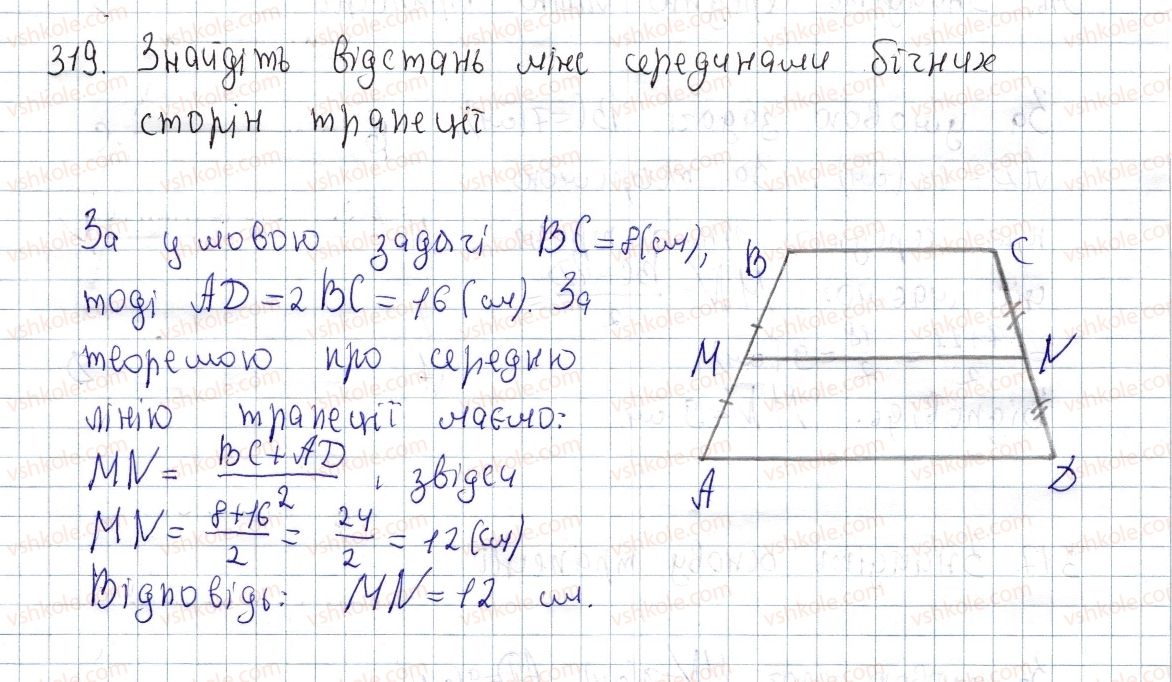 319. Знайдіть відстань між серединами бічних
сторін трапеції
За умовою задачі BC = 8(см),
тоді AD = 2BC = 16 (см). За
теоремою про середню
лінію трапеції маємо:
MN = (BC + AD)/2, звідси
MN = (8+16)/2 = 24/2 = 12 (см)
Відповідь: MN = 12 см.
B C
M N
A D
vshkole.com